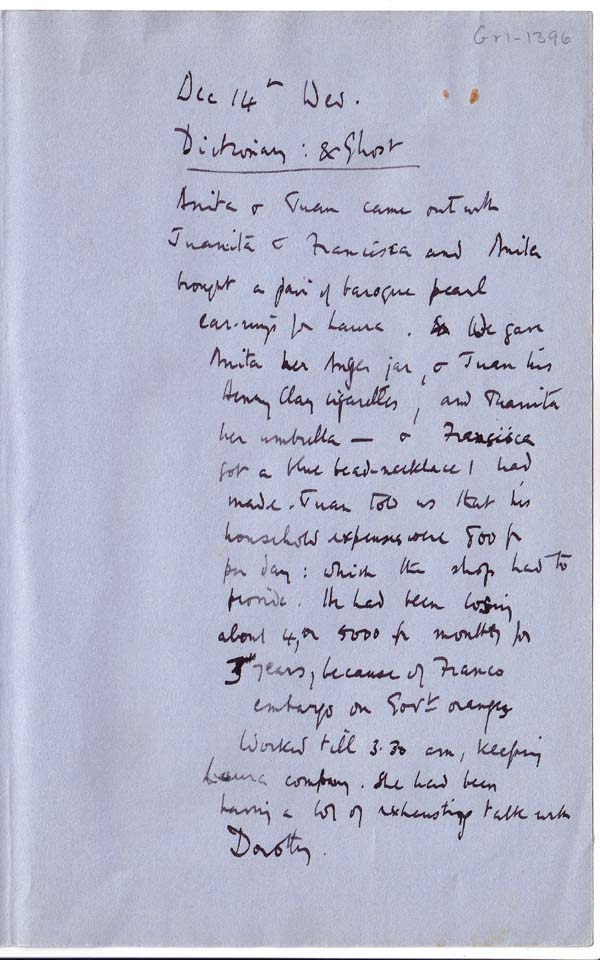 Gr1-1396
Dec 14th Wed.
Dictionary : & Ghost
Anita & Juan came out with
Juanita & Francisca and Anita
bought a pair of baroque pearl
ear-rings for Laura . We gave
Anita her jar, & Juan his
Henry Clay cigarettes, and Juanita
her umbrella — & Francisca
got a blue bead-necklace I had
made. Juan told us that his
household expenses were 500 fr
per day : which the shop had to
provide. He had been losing
about 4, or 5000 fr monthly for
3 years, because of Franco
embargo on Govt oranges
Worked till 3.30 am, keeping
Laura company. She had been
having a lot of exhausting talk with
Dorothy.